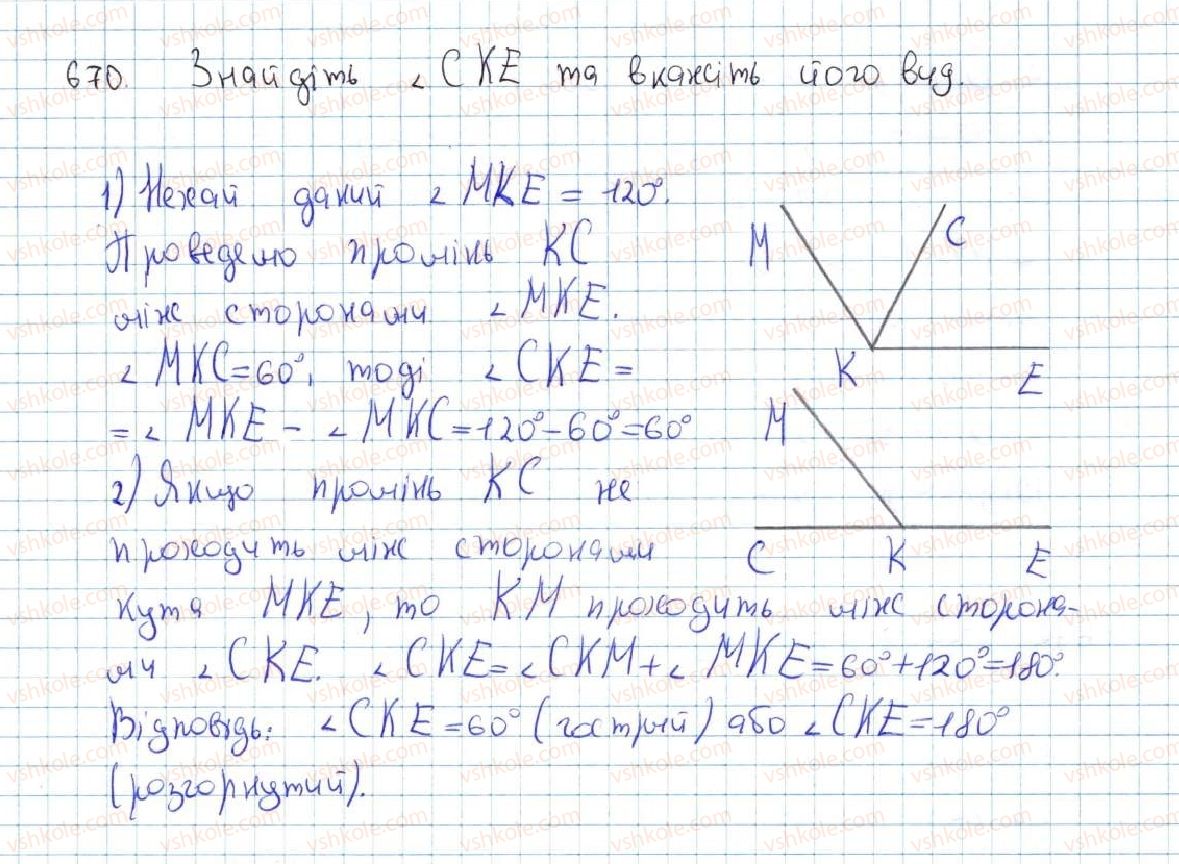 670. Знайдіть ∠CKE та вкажіть його вид.
1) Нехай даний ∠MKE = 120°.
Проведемо промінь KC
між сторонами ∠MKE.
∠MKC=60°, тоді ∠CKE =
=∠MKE - ∠MKC=120°-60°=60°
2) Якщо промінь KC не
проходить між сторонами
кута MKE, то KM проходить між сторона-
ми ∠CKE. ∠CKE=∠CKM+∠MKE=60°+120°=180°.
Відповідь: ∠CKE=60° (гострий) або ∠CKE=180°
(розгорнутий).
M
C
K
E
M
C
K
E
vshkole.com